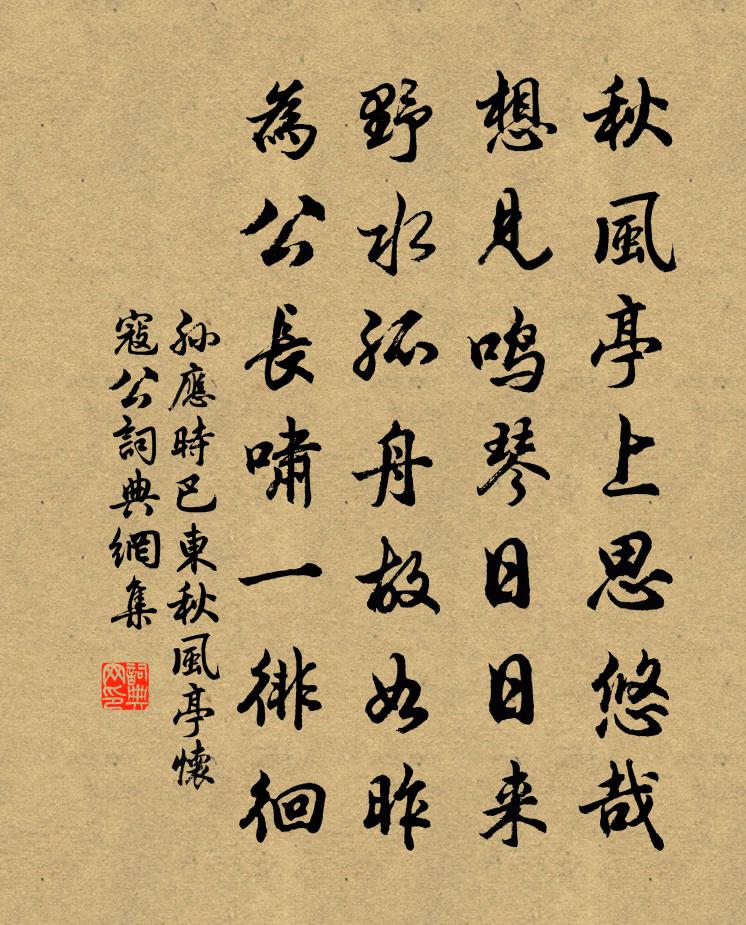 秋風亭上思悠哉
想見鳴琴日日来
野水孤舟故如昨
為公長嘯一徘徊
孫應時巴東秋風亭懷
寇公詞典網集
詞典网印